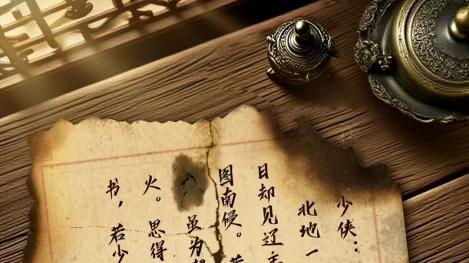 少侠：
北地一
日却见辽
图南侵。
虽为
火。思得
书，若少